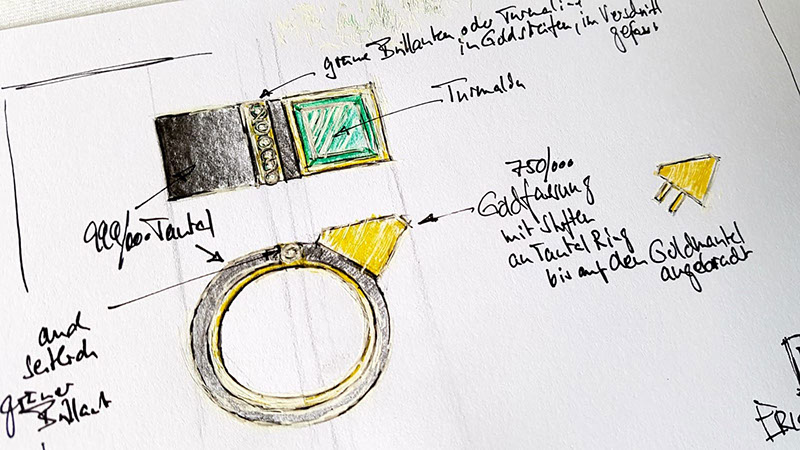 grüne Brillanten oder Turmaline
in Goldstreifen, im Verschnitt
gefasst
Turmalin
999/000 Tantal
750/000
Goldfassung
mit Stiften
an Tantal Ring
bis auf den Goldmantel
angebracht
auch
seitlich
grüner
Brillant